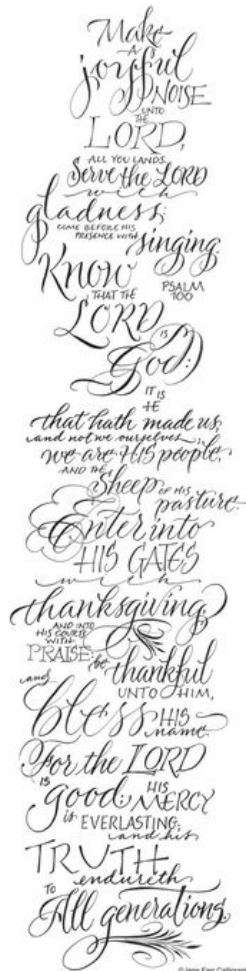 Make
A
joyful
NOISE
UNTO
THE
LORD,
ALL YOU LANDS.
Serve the LORD
with
gladness;
COME BEFORE HIS
PRESENCE WITH
singing.
Know
THAT THE
PSALM
100
LORD
IS
God:
IT IS
HE
that hath made us,
and not we ourselves;
we are HIS people,
AND THE
Sheep OF HIS
pasture.
Enter into
HIS GATES
with
thanksgiving,
AND INTO
HIS COURTS
WITH
PRAISE: be
thankful
UNTO HIM,
and
bless HIS
name.
For the LORD
IS
good; HIS
MERCY
is EVERLASTING;
and his
TRUTH
endureth
TO
All generations.
© Jane Farr